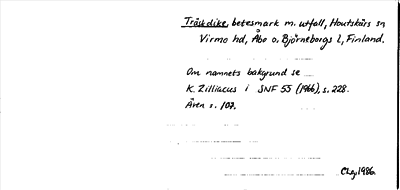 Träskdike, betesmark m. utfall, Houtskärs sn
Virmo hd, Åbo o. Björneborgs l, Finland.
Om namnets bakgrund se
K. Zilliacus i SNF 55 (1966), s. 228.
Även s. 107.
1986